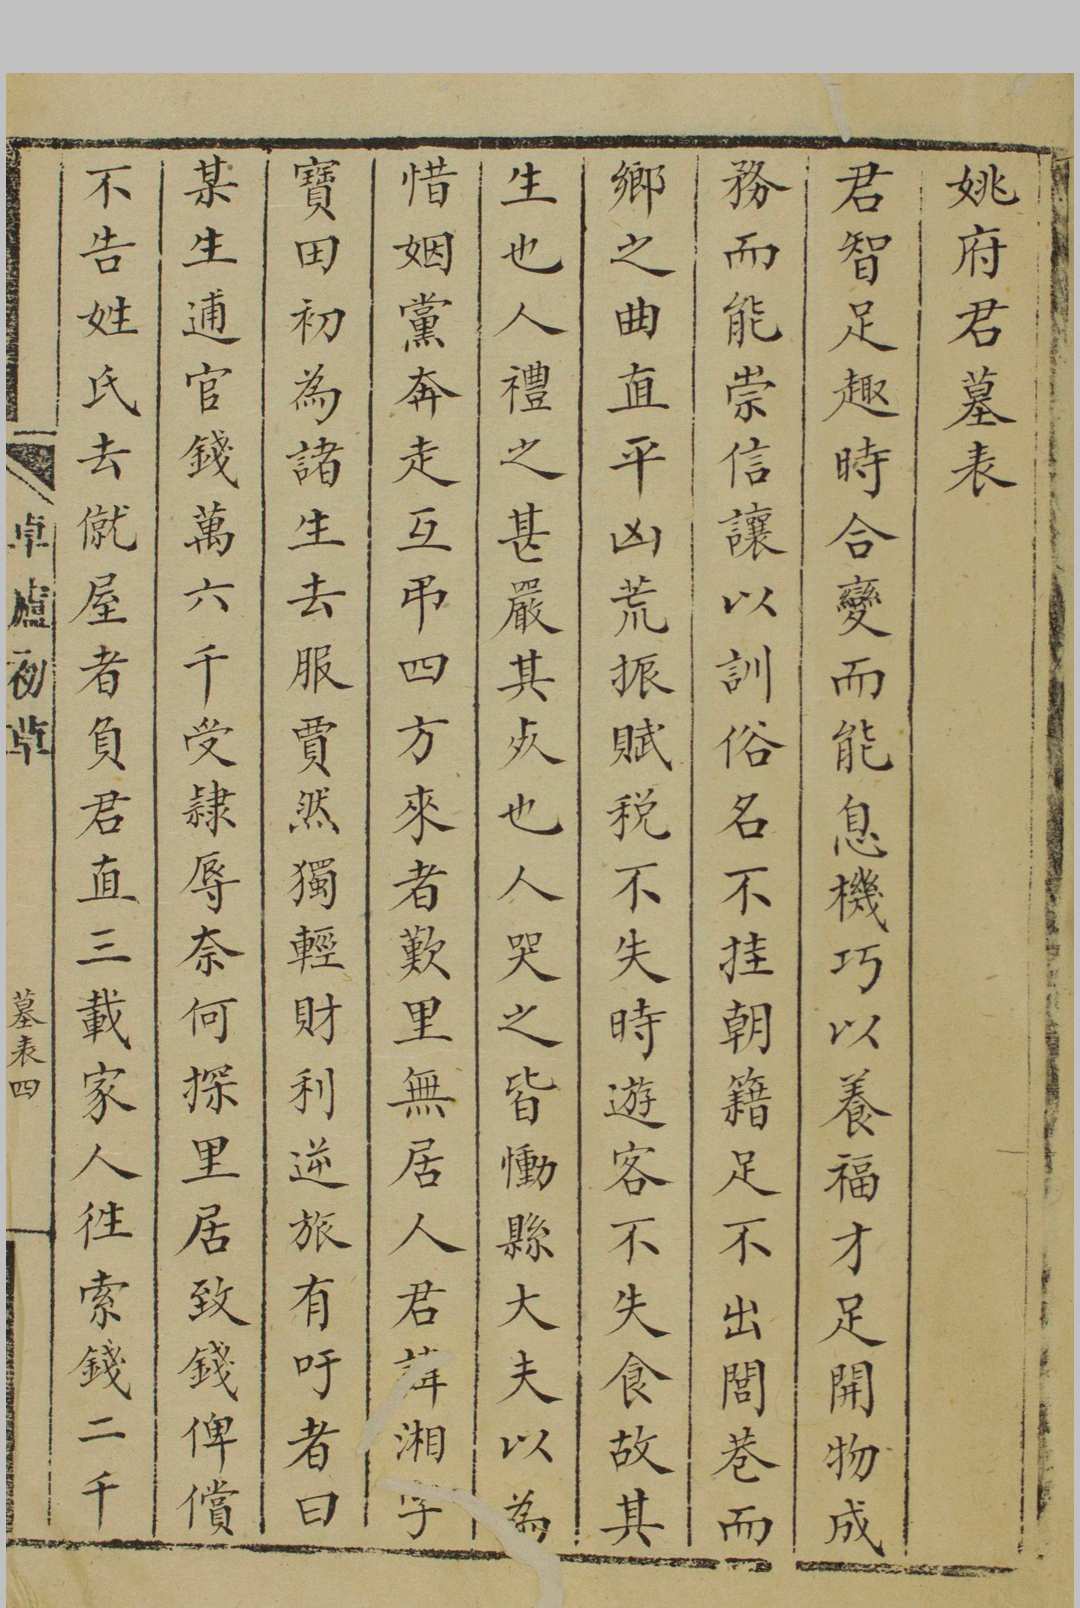 姚府君墓表
君智足趣時合變而能息機巧以養福才足開物成
務而能崇信讓以訓俗名不挂朝籍足不出閭巷而
鄉之曲直平凶荒振賦稅不失時遊客不失食故其
生也人禮之甚嚴其歿也人哭之皆慟縣大夫以為
惜姻黨奔走互弔四方來者歎里無居人君諱湘字
寶田初為諸生去服賈然獨輕財利逆旅有吁者曰
某生逋官錢萬六千受隸辱奈何探里居致錢俾償
不告姓氏去僦屋者負君直三載家人徃索錢二千
卓廬初草
墓表四